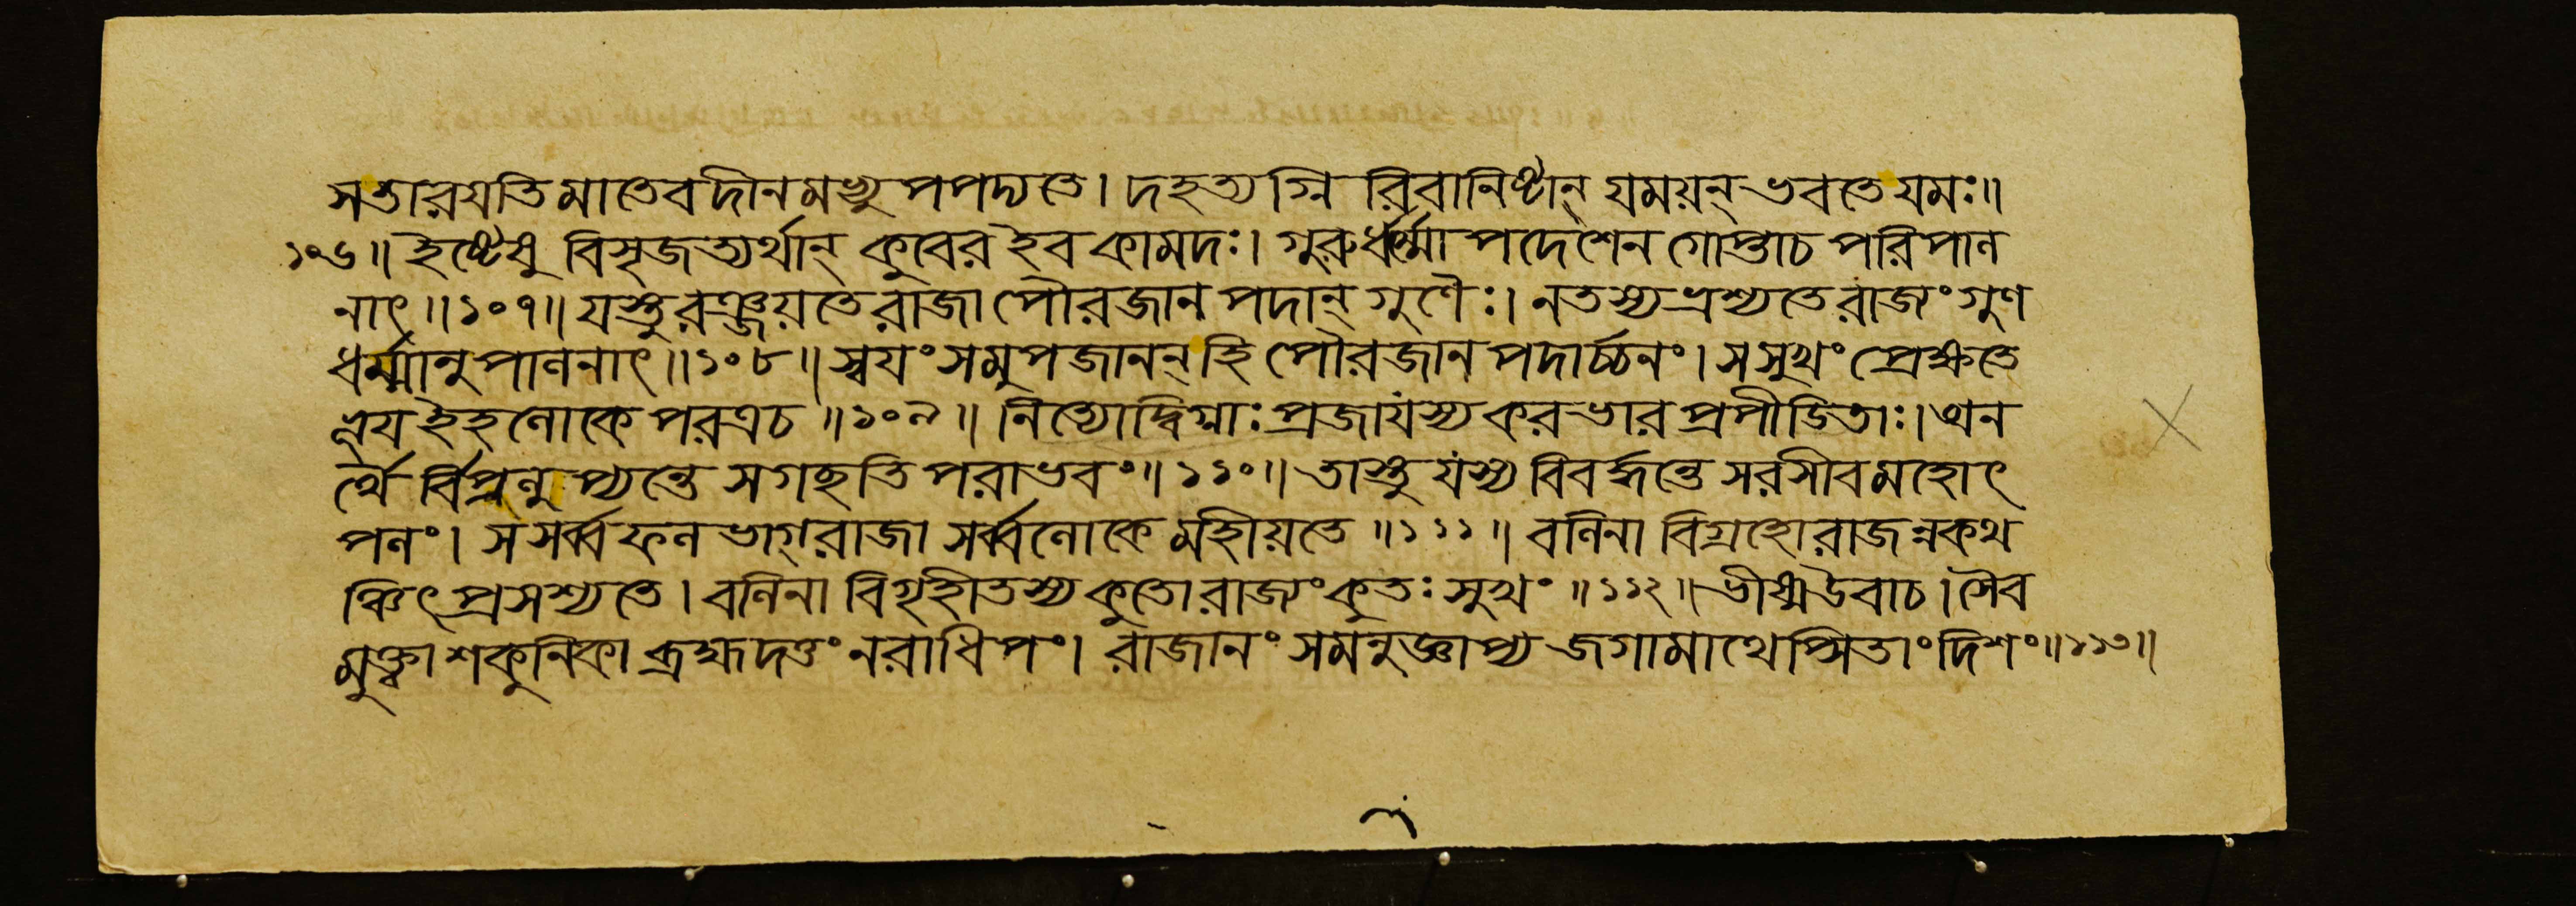 সতারযতি মাতেব দীনমভ্যুপপদ্যতে। দহত্যগ্নিরিবানিষ্টান্ যময়ন্ ভবতে যমঃ॥
১০৬॥ ইষ্টেষু বিসৃজত্যর্থান্ কুবের ইব কামদঃ। গুরুর্ধর্ম্মোপদেশেন গোপ্তাচ পরিপাল
নাৎ॥১০৭॥ যস্তু রঞ্জয়তে রাজা পৌরজানপদান্ গুণৈঃ। নতস্য ভ্রশ্যতে রাজ্যং গুণ
ধর্ম্মানুপালনাৎ॥১০৮॥ স্বযং সমুপজানন্ হি পৌরজানপদার্চ্চনং। স সুখং প্রেক্ষতে
নৃয ইহলোকে পরত্রচ॥১০৯॥ নিত্যোদ্বিগ্নাঃ প্রজা যস্য করভার প্রপীডিতাঃ। অন
র্থৈর্বিপ্রলুপ্যন্তে স গছতি পরাভবং॥১১০॥ তাস্তু যস্য বিবর্দ্ধন্তে সরসীব মহোৎ
পলং। স সর্ব্বফল ভাগ্রাজা সর্ব্বলোকে মহীয়তে॥১১১॥ বলিনা বিগ্রহো রাজন্নকথ
ঞ্চিৎ প্রসশ্যতে। বলিনা বিগৃহীতস্য কুতো রাজ্যং কুতঃ সুখং॥১১২॥ ভীষ্মউবাচ। সৈব
মুক্ত্বা শকুনিকা ব্রহ্মদত্তং নরাধিপং। রাজানং সমনুজ্ঞাপ্য জগামাথেপ্সিতাং দিশং॥১১৩॥